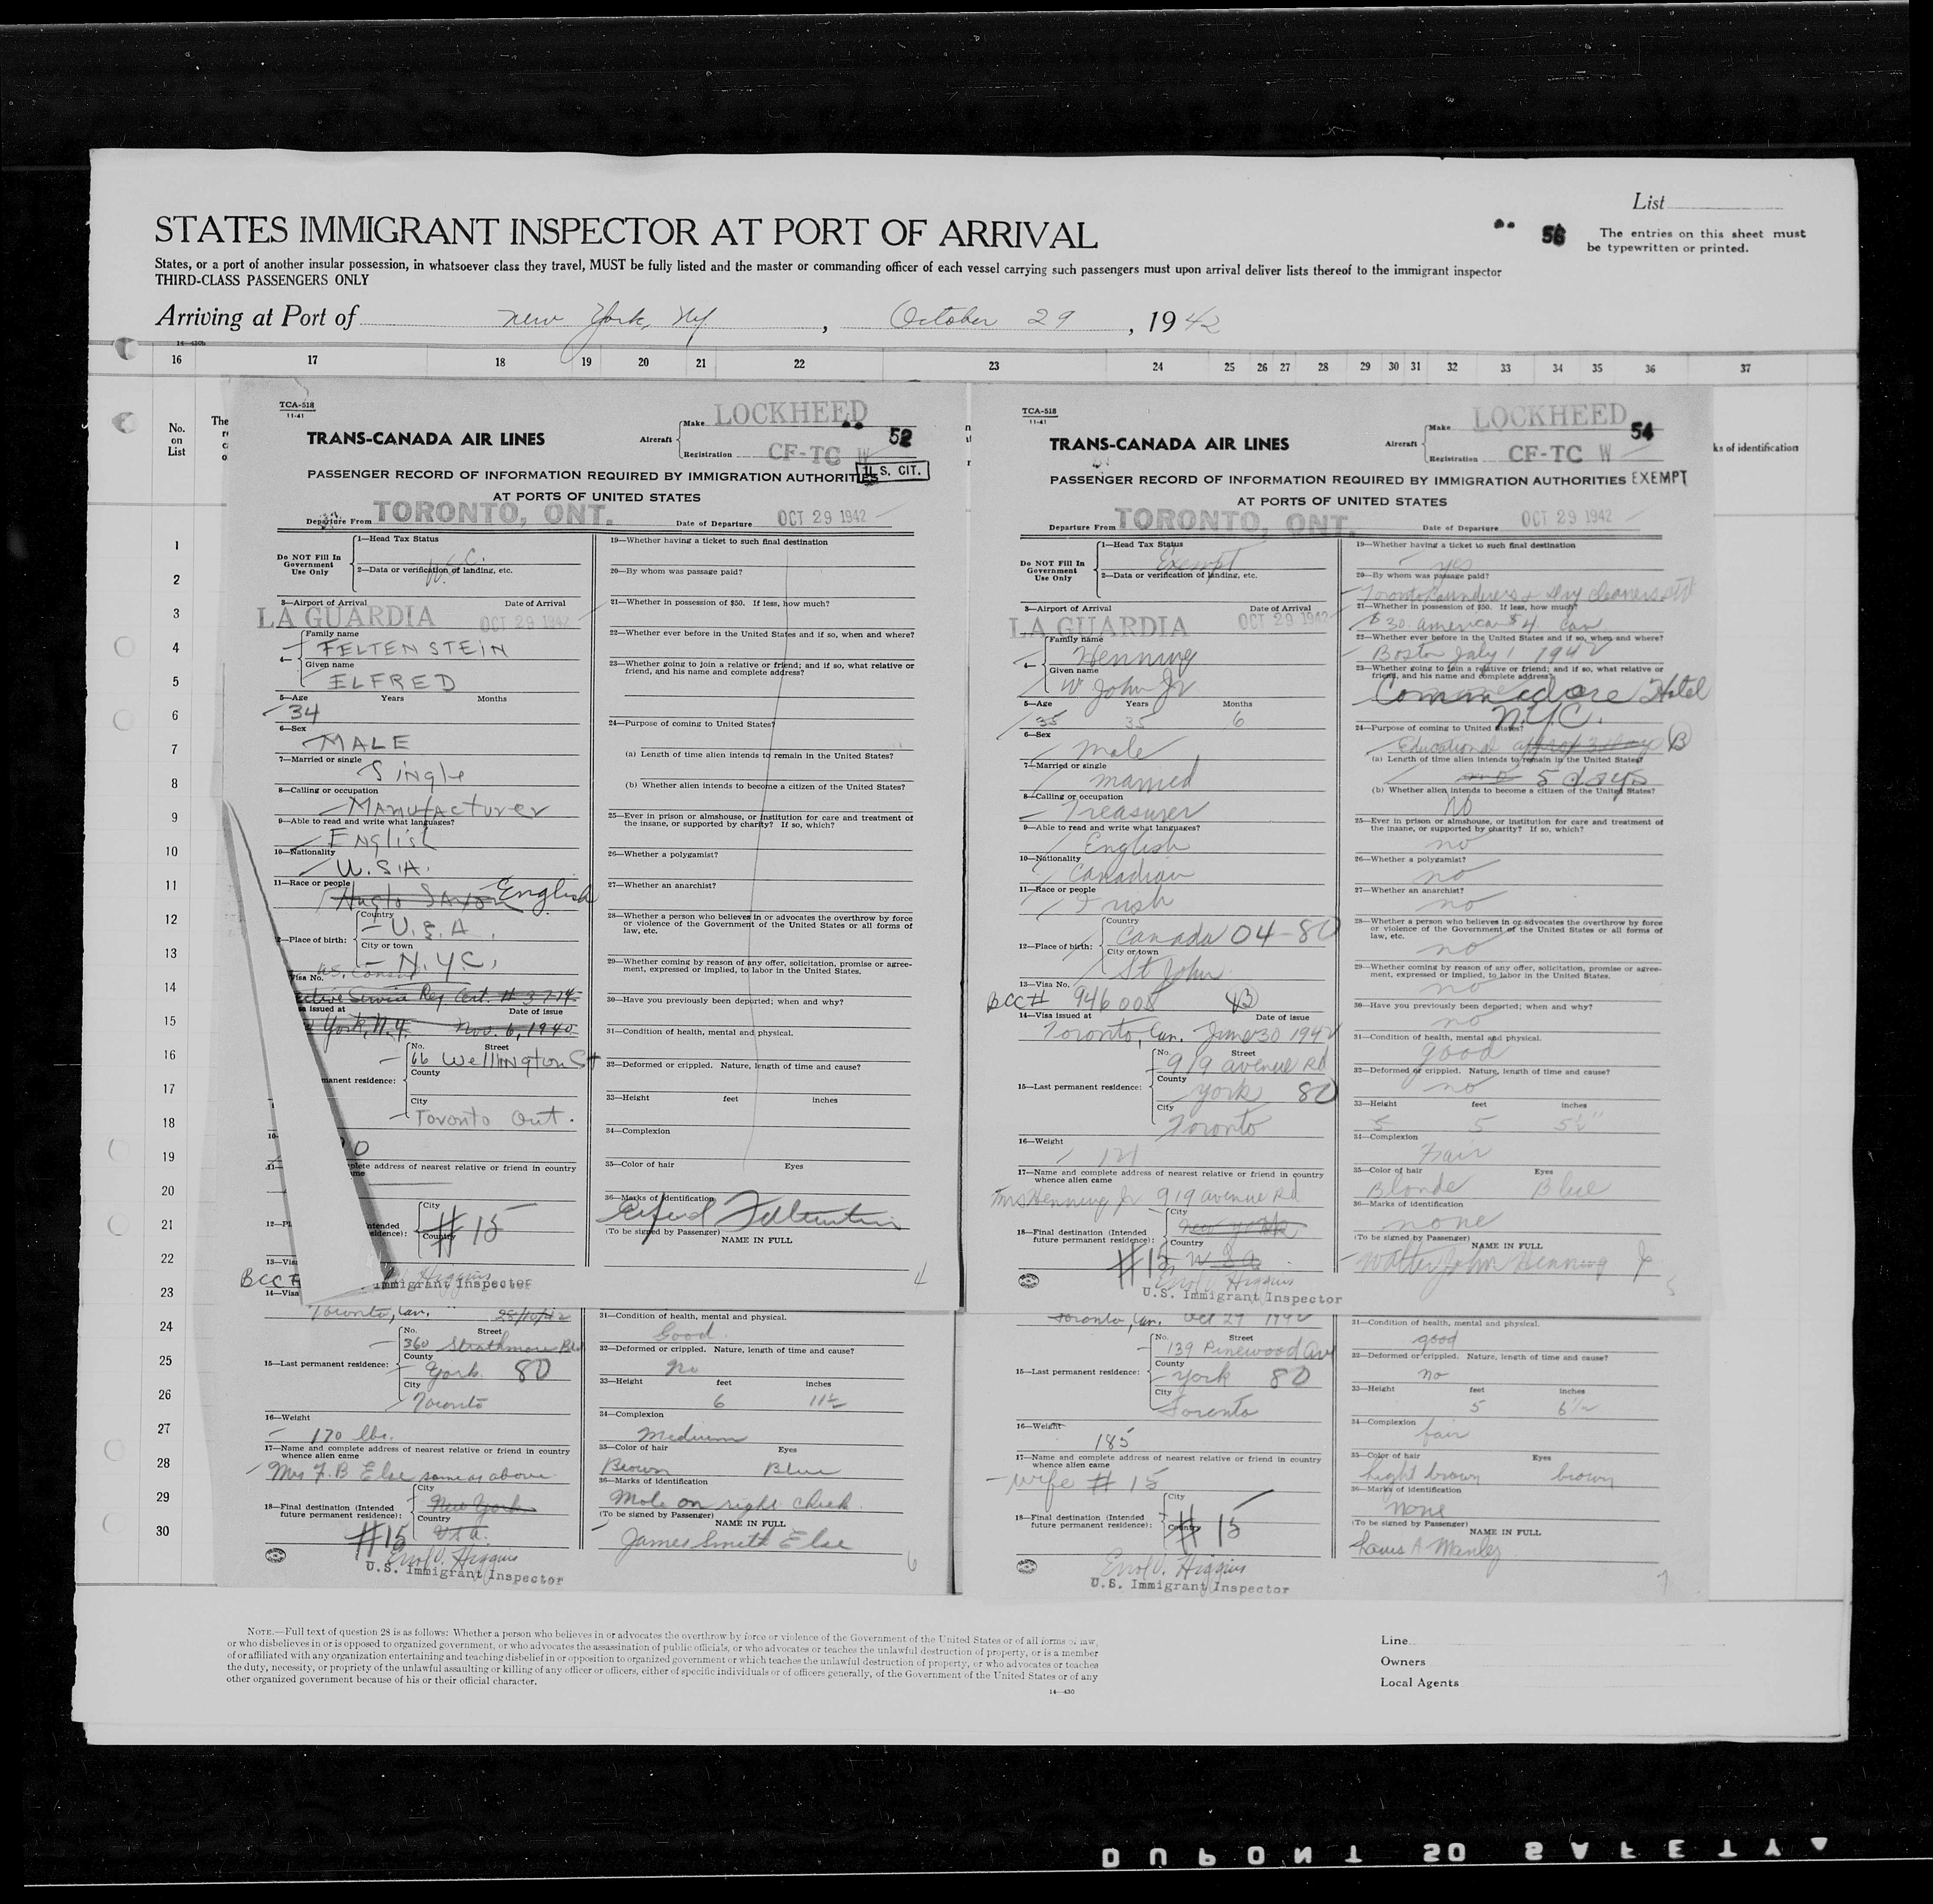 List
STATES IMMIGRANT INSPECTOR AT PORT OF ARRIVAL
56
The entries on this sheet must
be typewritten or printed.
States, or a port of another insular possession, in whatsoever class they travel, MUST be fully listed and the master or commanding officer of each vessel carrying such passengers must upon arrival deliver lists thereof to the immigrant inspector
THIRD-CLASS PASSENGERS ONLY
Arriving at Port of New York, NY, October 29, 1942
16 17 18 19 20 21 22 23 24 25 26 27 28 29 30 31 32 33 34 35 36 37
No.
on
List
The
1
2
3
4
5
6
7
8
9
10
11
12
13
14
15
16
17
18
19
20
21
22
23
24
25
26
27
28
29
30
TCA-518
11-41
Make LOCKHEED
TRANS-CANADA AIR LINES
Aircraft
52
Registration CF-TC W
PASSENGER RECORD OF INFORMATION REQUIRED BY IMMIGRATION AUTHORITIES
U.S. CIT.
AT PORTS OF UNITED STATES
Departure From TORONTO, ONT. Date of Departure OCT 29 1942
Do NOT Fill In
Government
Use Only
1—Head Tax Status
2—Data or verification of landing, etc.
3—Airport of Arrival Date of Arrival
LA GUARDIA OCT 29 1942
4— Family name
FELTENSTEIN
Given name
ELFRED
5—Age Years Months
34
6—Sex
MALE
7—Married or single
Single
8—Calling or occupation
Manufacturer
9—Able to read and write what languages?
English
10—Nationality
U.S.A.
11—Race or people
Anglo Saxon English
Country
U.S.A.
2—Place of birth:
City or town
N.Y.C.
Visa No.
ective Service Reg Cert. # 3774
a issued at Date of issue
York, N.Y. Nov. 6, 1940
No. Street
66 Wellington St
County
manent residence:
City
Toronto Ont.
plete address of nearest relative or friend in country
City
#15
Country
Immigrant Inspector
19—Whether having a ticket to such final destination
20—By whom was passage paid?
21—Whether in possession of $50. If less, how much?
22—Whether ever before in the United States and if so, when and where?
23—Whether going to join a relative or friend; and if so, what relative or
friend, and his name and complete address?
24—Purpose of coming to United States?
(a) Length of time alien intends to remain in the United States?
(b) Whether alien intends to become a citizen of the United States?
25—Ever in prison or almshouse, or institution for care and treatment of
the insane, or supported by charity? If so, which?
26—Whether a polygamist?
27—Whether an anarchist?
28—Whether a person who believes in or advocates the overthrow by force
or violence of the Government of the United States or all forms of
law, etc.
29—Whether coming by reason of any offer, solicitation, promise or agree-
ment, expressed or implied, to labor in the United States.
30—Have you previously been deported; when and why?
31—Condition of health, mental and physical.
32—Deformed or crippled. Nature, length of time and cause?
33—Height feet inches
34—Complexion
35—Color of hair Eyes
36—Marks of identification
Elfred Feltenstein
(To be signed by Passenger)
NAME IN FULL
4
TCA-518
11-41
Make LOCKHEED
TRANS-CANADA AIR LINES
Aircraft
54
Registration CF-TC W
ks of identification
PASSENGER RECORD OF INFORMATION REQUIRED BY IMMIGRATION AUTHORITIES EXEMPT
AT PORTS OF UNITED STATES
Departure From TORONTO, ONT. Date of Departure OCT 29 1942
Do NOT Fill In
Government
Use Only
1—Head Tax Status
Exempt
2—Data or verification of landing, etc.
3—Airport of Arrival Date of Arrival
LA GUARDIA OCT 29 1942
4— Family name
Henning
Given name
W John Jr
5—Age Years Months
35 35 6
6—Sex
Male
7—Married or single
married
8—Calling or occupation
Treasurer
9—Able to read and write what languages?
English
10—Nationality
Canadian
11—Race or people
Irish
Country
Canada 04-80
12—Place of birth:
City or town
St John
13—Visa No.
BCC# 946008
14—Visa issued at Date of issue
Toronto, Can. June 30 1942
No. Street
919 avenue Rd
County
15—Last permanent residence:
York 80
City
Toronto
16—Weight
17—Name and complete address of nearest relative or friend in country
whence alien came
Mrs Henning Jr 919 avenue Rd
City
New York
18—Final destination (Intended
future permanent residence):
Country
#15
Errol V. Higgins
U.S. Immigrant Inspector
19—Whether having a ticket to such final destination
yes
20—By whom was passage paid?
Toronto Launderers & Dry Cleaners
21—Whether in possession of $50. If less, how much?
$30 american $4 can
22—Whether ever before in the United States and if so, when and where?
Boston July 1 1942
23—Whether going to join a relative or friend; and if so, what relative or
friend, and his name and complete address?
Commodore Hotel
N.Y.C.
24—Purpose of coming to United States?
Educational B
(a) Length of time alien intends to remain in the United States?
5 days
(b) Whether alien intends to become a citizen of the United States?
No
25—Ever in prison or almshouse, or institution for care and treatment of
the insane, or supported by charity? If so, which?
no
26—Whether a polygamist?
no
27—Whether an anarchist?
no
28—Whether a person who believes in or advocates the overthrow by force
or violence of the Government of the United States or all forms of
law, etc.
no
29—Whether coming by reason of any offer, solicitation, promise or agree-
ment, expressed or implied, to labor in the United States.
no
30—Have you previously been deported; when and why?
no
31—Condition of health, mental and physical.
good
32—Deformed or crippled. Nature, length of time and cause?
no
33—Height feet inches
5 5 5½"
34—Complexion
Fair
35—Color of hair Eyes
Blonde Blue
36—Marks of identification
none
(To be signed by Passenger)
NAME IN FULL
Walter John Henning Jr
5
BCC #
13—Visa
14—Visa
Toronto, Can. 28/10/42
No. Street
360 Strathmore Blvd
County
15—Last permanent residence:
York 80
City
Toronto
16—Weight
170 lbs.
17—Name and complete address of nearest relative or friend in country
whence alien came
Mrs F. B Else same as above
City
New York
18—Final destination (Intended
future permanent residence):
Country
#15 USA.
Errol V. Higgins
U.S. Immigrant Inspector
31—Condition of health, mental and physical.
Good
32—Deformed or crippled. Nature, length of time and cause?
no
33—Height feet inches
6 11½
34—Complexion
Medium
35—Color of hair Eyes
Brown Blue
36—Marks of identification
Mole on right cheek
(To be signed by Passenger)
NAME IN FULL
James Smith Else
6
Toronto, Can. Oct 29 1942
No. Street
139 Pinewood Ave
County
15—Last permanent residence:
York 80
City
Toronto
16—Weight
185
17—Name and complete address of nearest relative or friend in country
whence alien came
wife # 15
City
18—Final destination (Intended
future permanent residence):
Country
# 15
Errol V. Higgins
U.S. Immigrant Inspector
31—Condition of health, mental and physical.
good
32—Deformed or crippled. Nature, length of time and cause?
no
33—Height feet inches
5 6½
34—Complexion
fair
35—Color of hair Eyes
light brown brown
36—Marks of identification
none
(To be signed by Passenger)
NAME IN FULL
Louis A Manley
7
NOTE.—Full text of question 28 is as follows: Whether a person who believes in or advocates the overthrow by force or violence of the Government of the United States or of all forms of law,
or who disbelieves in or is opposed to organized government, or who advocates the assassination of public officials, or who advocates or teaches the unlawful destruction of property, or is a member
of or affiliated with any organization entertaining and teaching disbelief in or opposition to organized government or which teaches the unlawful destruction of property, or who advocates or teaches
the duty, necessity, or propriety of the unlawful assaulting or killing of any officer or officers, either of specific individuals or of officers generally, of the Government of the United States or of any
other organized government because of his or their official character.
14—430
Line
Owners
Local Agents
DUPONT SO SAFETY